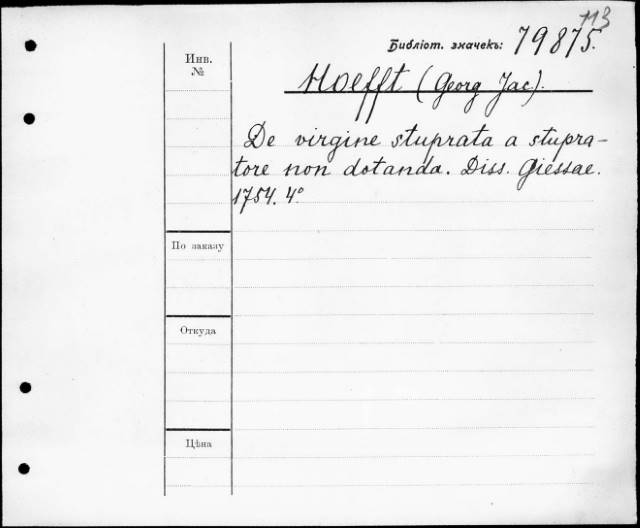 113
Библіот. значекъ: 79875.
Инв. №
Hoefft (Georg Jac).
De virgine stuprata a stupra-
tore non dotanda. Diss. Giessae.
1754. 4º
По заказу
Откуда
Цѣна